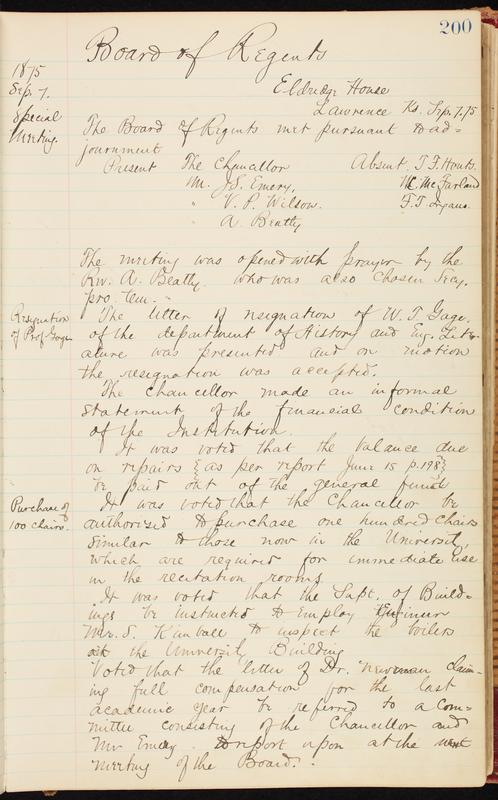 200
Board of Regents
1875
Sep. 7.
Special
Meeting.
Eldridge House
Lawrence Ks. Sep. 7. 75
The Board of Regents met pursuant to ad=
journment
Present The Chancellor Absent, T. F. Houts.
Mr. J. S. Emery, Mc. McFarland
" V. P. Wilson. F. T. Ingalls.
" A. Beatty
The meeting was opened with prayer by the
Rev. A. Beatty who was also chosen Secy.
pro. tem.
Resignation
of Prof Gage
The letter of resignation of W. T. Gage.
of the department of History and Eng. Liter-
ature was presented and on motion
the resignation was accepted.
The Chancellor made an informal
statement of the financial condition
of the Institution.
It was voted that the balance due
on repairs {as per report June 15 p. 198}
be paid out of the general fund
Purchase of
100 chairs.
It was voted that the Chancellor be
authorized to purchase one hundred chairs
similar to those now in the University,
which are required for immediate use
in the recitation rooms
It was voted that the Supt. of Build=
ings be instructed to employ Engineer
Mr. S. Kimball to inspect the boilers
at the University Building
Voted that the letter of Dr. Newman claim-
ing full compensation for the last
academic year be referred to a Com-
mittee consisting of the Chancellor and
Mr Emery. to report upon at the next
meeting of the Board.